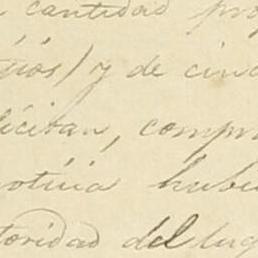 cantidad pro
tiós) y de cinc
licitan, compr
oticia hubie
toridad del lug